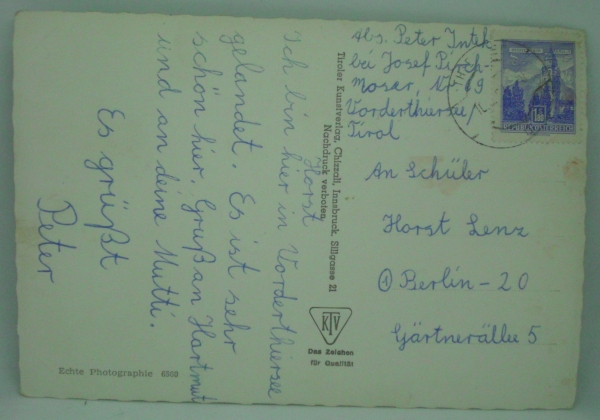 Horst
Ich bin hier in Vorderthiersee
gelandet. Es ist sehr
schön hier. Gruß an Hartmut
und an deine Mutti.
Es grüßt
Peter
Echte Photographie
Tiroler Kunstverlag, Chizzali, Innsbruck, Sillgasse 21
Nachdruck verboten
KTV
Das Zeichen
für Qualität
Abs. Peter Intek
bei Josef Pirch-
moser, Nr. 69
Vorderthiersee/
Tirol
REPUBLIK ÖSTERREICH
An Schüler
Horst Lenz
① Berlin-20
Gärtnerallee 5